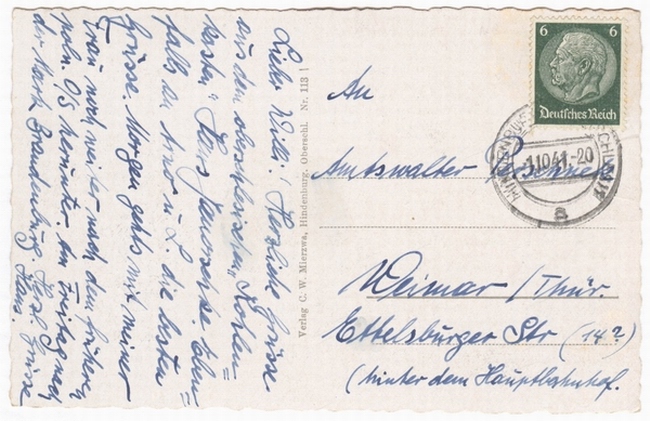 Lieber Willi! Herzliche Grüsse
aus den oberschlesischen "Kohlen=
kasten" Hans
falls an u. L. die besten
Grüsse. Morgen gehts mit meiner
Frau noch weiter nach dem früheren
poln. O/S herunter. Am Freitag nach
der Mark Brandenburg. Herzl. Grüsse
Hans.
Verlag C. W. Mierzwa, Hindenburg, Oberschl. Nr. 113
6 6
Deutsches Reich
HINDENBURG
1.10.41.-20
a
An
Amtswalter
Weimar / Thür.
Ettelsburger Str (14?)
(hinter dem Hauptbahnhof.